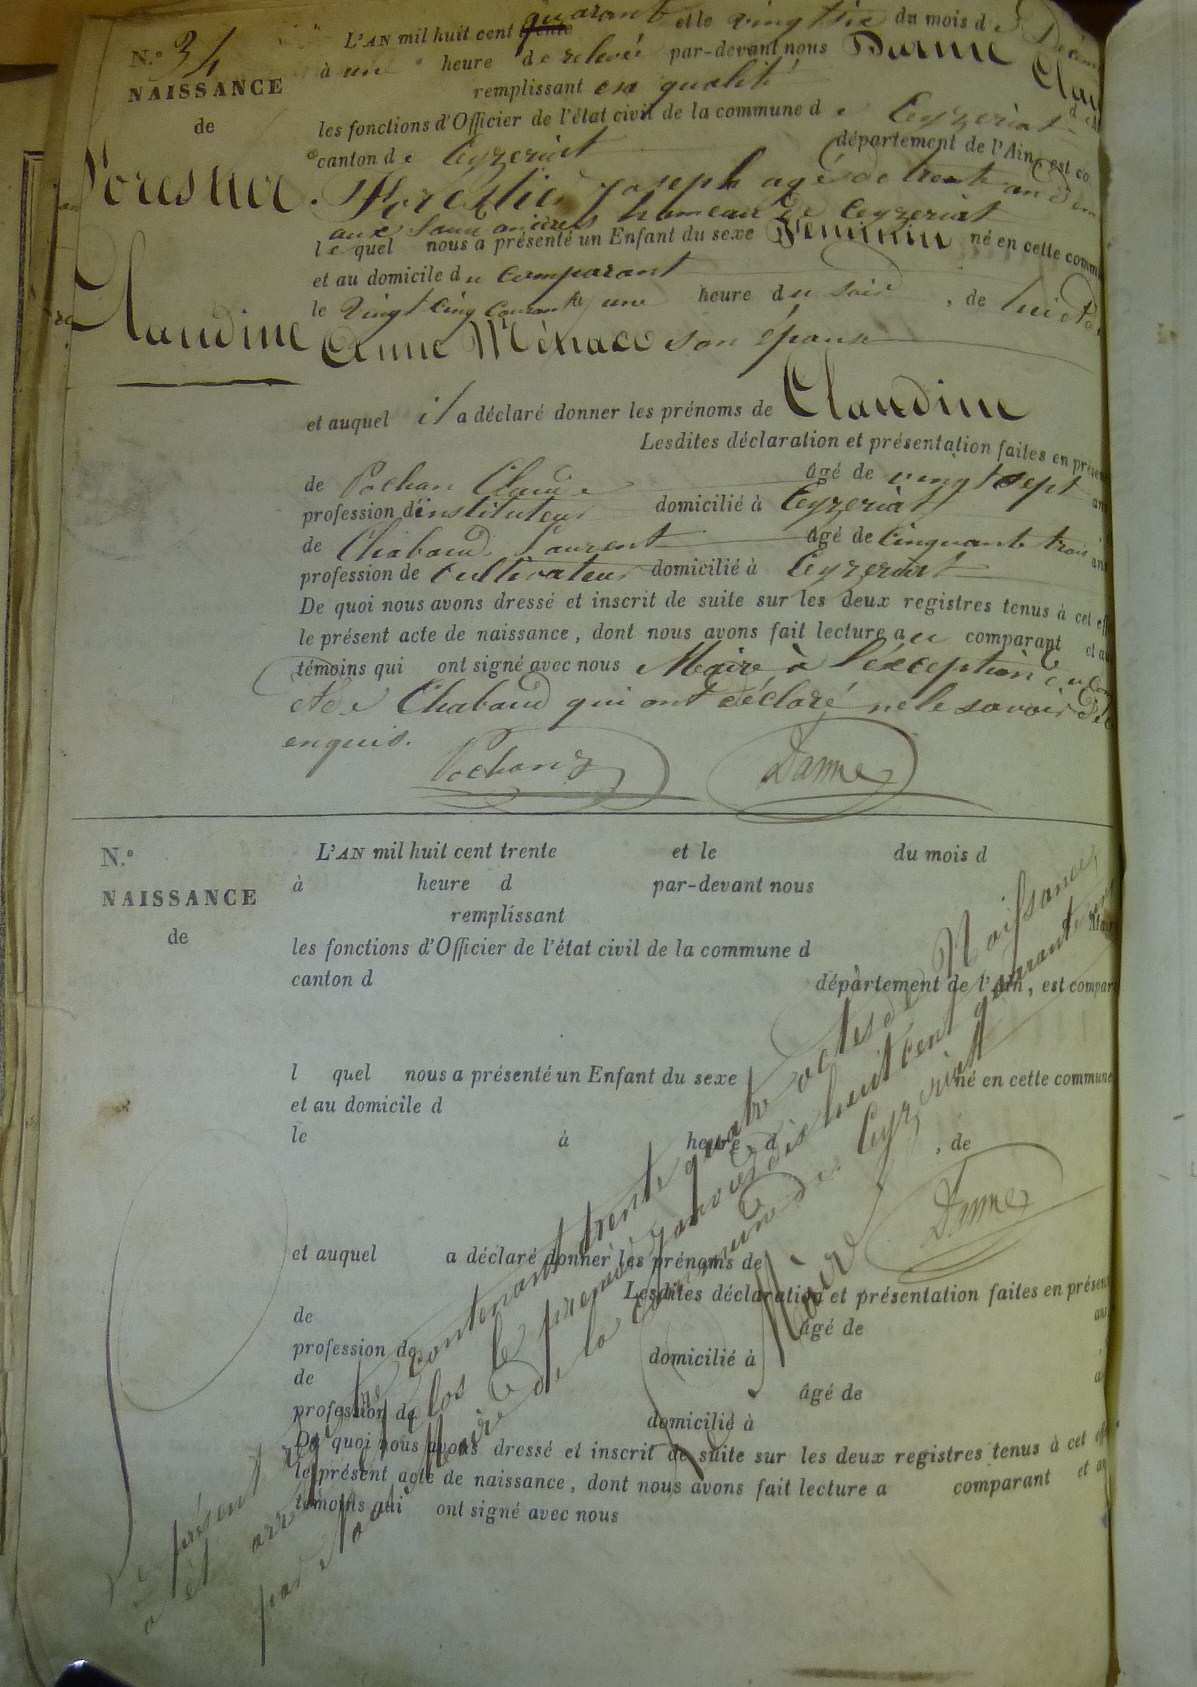 N.° 34
NAISSANCE
de
Forestier
Claudine
L'AN mil huit cent quarant et le vingt six du mois de Décem
à une heure de relevée par-devant nous Danne Clau
remplissant en qualité
les fonctions d'Officier de l'état civil de la commune de Ceyzeriat
canton de Ceyzeriat département de l'Ain, est co
Forestier Joseph agé de trente an dem
aux hameau de Ceyzeriat
lequel nous a présenté un Enfant du sexe Féminin né en cette comm
et au domicile du comparant
le vingt cinq courant à une heure du soir, de lui et d
Anne son épouse
et auquel il a déclaré donner les prénoms de Claudine
Lesdites déclaration et présentation faites en présen
de Pochon Claude âgé de vingt sept an
profession d'instituteur domicilié à Ceyzeriat
de Chabaud Laurent âgé de cinquante trois ans
profession de cultivateur domicilié à Ceyzeriat
De quoi nous avons dressé et inscrit de suite sur les deux registres tenus à cet eff
le présent acte de naissance, dont nous avons fait lecture au comparant et au
témoins qui ont signé avec nous Maire à l'exception du Com
et de Chabaud qui ont déclaré ne le savoir de
enquis.
Pochon Danne
N.°
NAISSANCE
de
L'AN mil huit cent trente et le du mois d
à heure d par-devant nous
remplissant
les fonctions d'Officier de l'état civil de la commune d
canton d département de l'Ain, est compar
l quel nous a présenté un Enfant du sexe né en cette commune
et au domicile d
le à heure d , de
et auquel a déclaré donner les prénoms de
Lesdites déclaration et présentation faites en présen
de âgé de ans
profession de domicilié à
de âgé de
profession de domicilié à
De quoi nous avons dressé et inscrit de suite sur les deux registres tenus à cet effe
le présent acte de naissance, dont nous avons fait lecture a comparant et au
témoins qui ont signé avec nous
Le présent registre contenant trente quatre actes de Naissances
a été arrêté et clos le premier janvier dix huit cent quarante
par Nous Maire de la Commune de Ceyzeriat
Maire
Danne